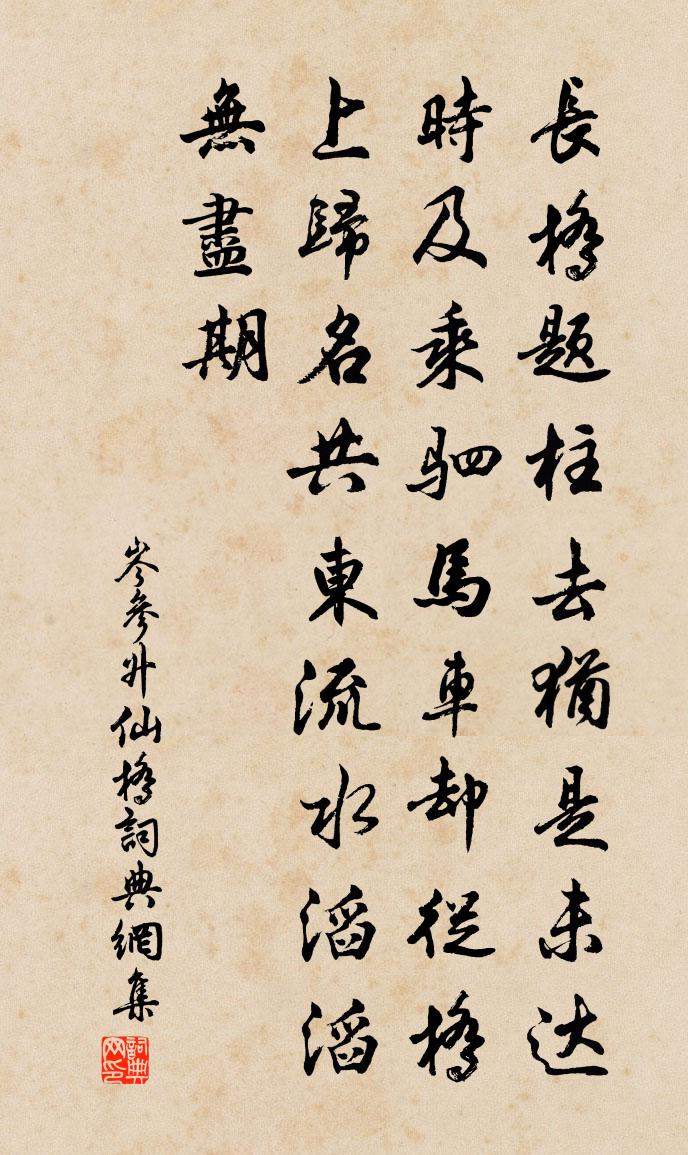 長橋題柱去猶是未达
時及乘駟馬車却從橋
上歸名共東流水滔滔
無盡期
岑參升仙橋詞典網集
詞典网印